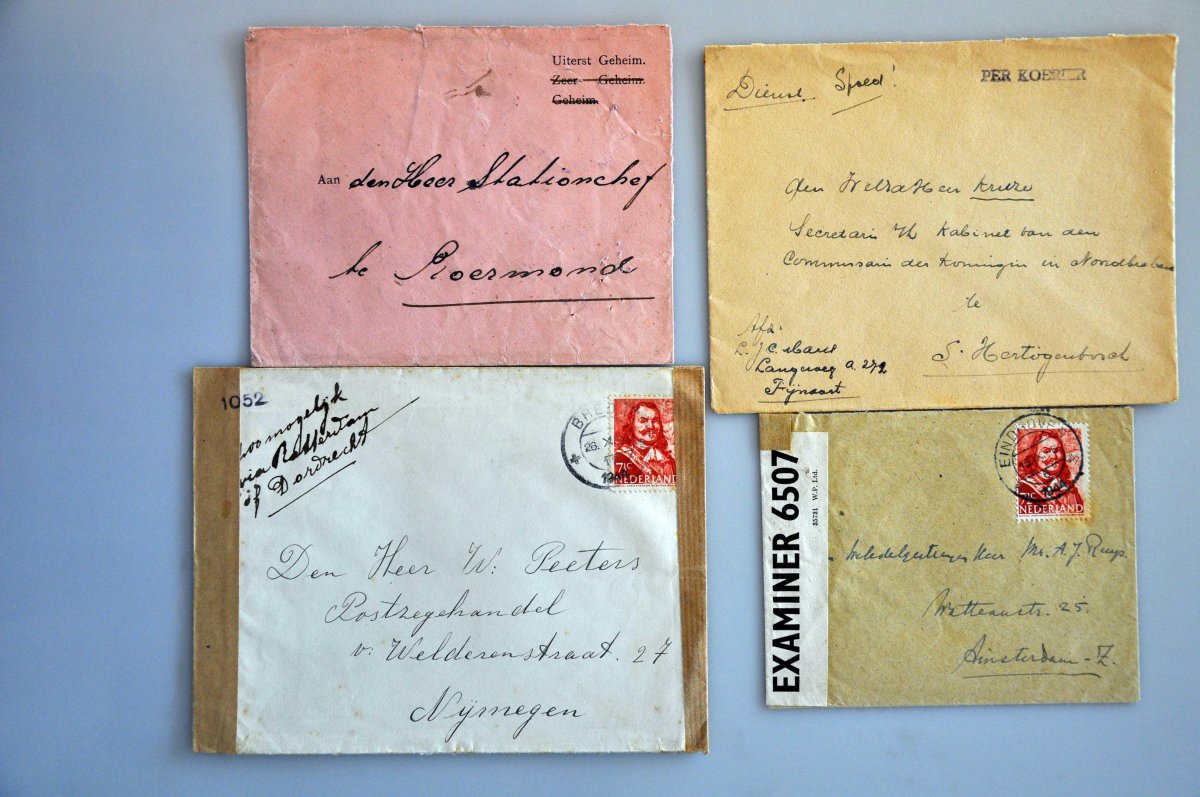 Uiterst Geheim.
Zeer Geheim.
Geheim.
Aan den Heer Stationchef
te Roermond
Dienst. Spoed!
PER KOERIER
den WelEd Heer Kruze
Secretaris Kabinet van den
Commissaris der Koningin in Noordbrabant
te
S. Hertogenbosch
Afz.
L. J. C.
Langeweg A. 272
Fijnaart
1052
zoo mogelijk
via Rotterdam
of Dordrecht
BRED
26. X
7½C
NEDERLAND
Den Heer W. Peeters
Postzegelhandel
v. Welderenstraat. 27
Nijmegen
EXAMINER 6507
35731 W.P. Ltd.
EINDHOVEN
7½C
NEDERLAND
Heer Mr. A. J. Ruys.
Watteaustr. 25.
Amsterdam-Z.